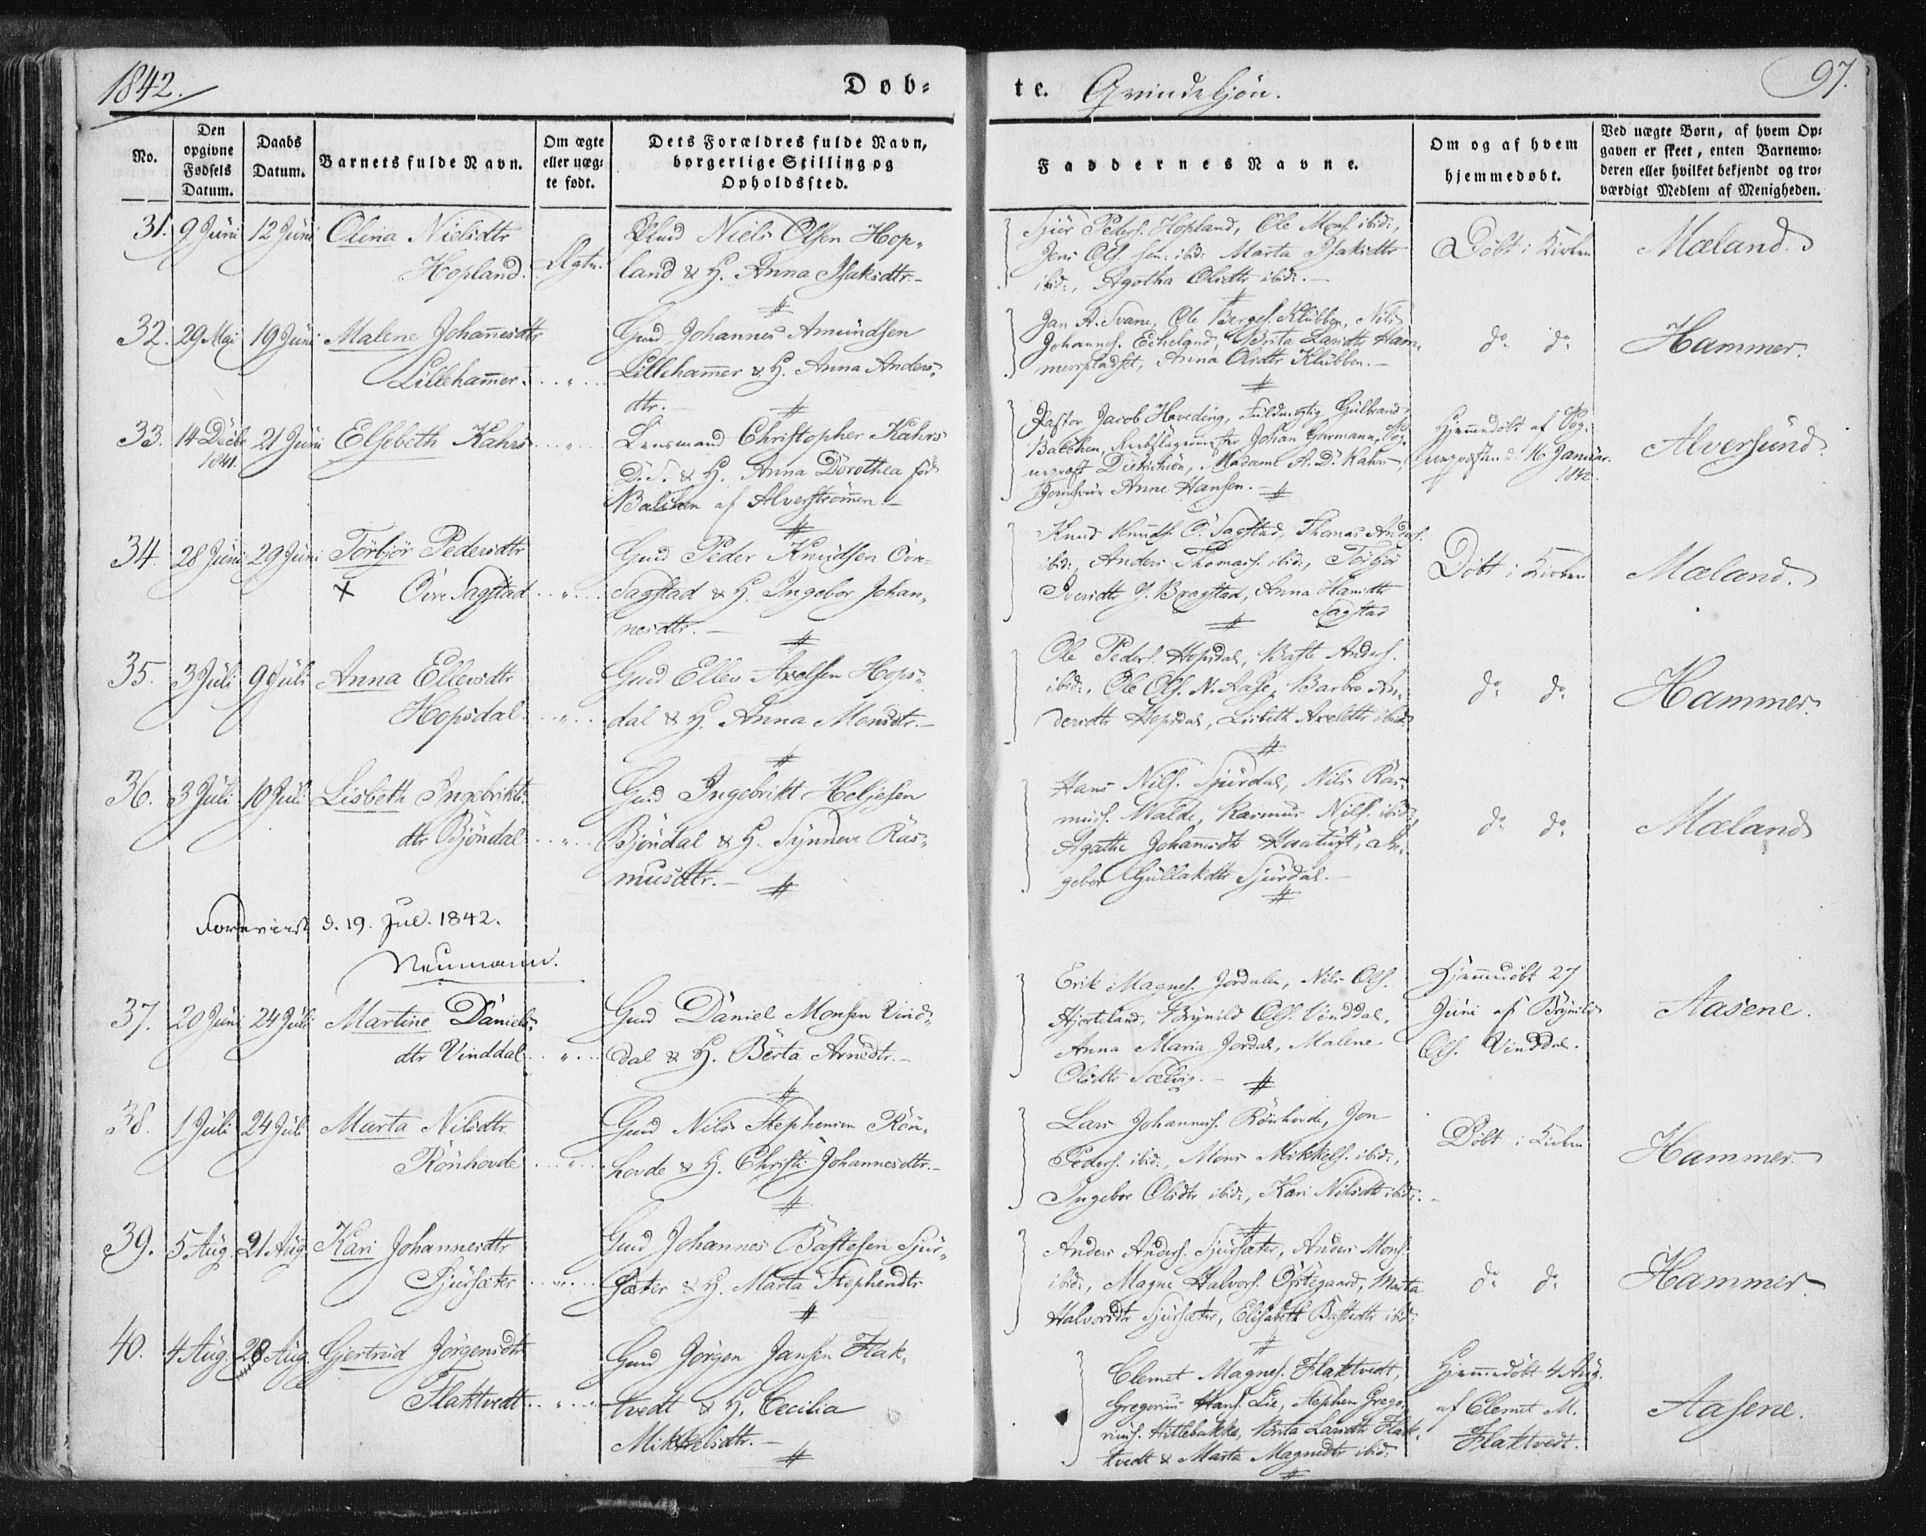 1842.
Døb-
te. Qvindekjön.
97.
No.
Den opgivne Fødsels Datum.
Daabs Datum.
Barnets fulde Navn.
Om ægte eller uæg-te født.
Dets Forældres fulde Navn, borgerlige Stilling og Opholdssted.
Faddernes Navne.
Om og af hvem hjemmedøbt.
Ved uægte Børn, af hvem Op-gaven er skeet, enten Barnemo-deren eller hvilket bekjendt og tro-værdigt Medlem af Menigheden.
31. 9 Juni 12 Juni Olina Nielsdtr
Hopland. Ægte.
Niels Olsen Hop-
land & H. Anna Isaksdtr.
Sjur Peders. Hopland, Ole Mons. ibid:,
Jens Ols. sen. ibid: Marta Isaksdtr
ibid:, Agatha Olsdtr ibid:
Döbt i Kirken
Mæland.
32. 29 Mai 19 Juni Malene Johannesdtr
Lillehammer.
Gmd Johannes Amundsen
Lillehammer & H. Anna Anders-
dtr.
Jan A. Svane, Ole Berges. Klubben, Nils
Johannes. Echeland, Brita Larsdtr Ham-
merspladset, Anna Olsdtr Klubben.
do do
Hammer.
33. 14 Decbr 1841. 21 Juni Elsebeth Kahrs
Lensmand Christopher Kahrs
D. S. & H. Anna Dorothea föd
Balchen af Alverströmmen
Pastor Jacob Hoveding, Fuldmægtig Gulbrand
Balchen, Johan Germann,
Madame A. D. Kahrs
Jomfrue Anne Hansen.
Hjemmedöbt af
16 Januar
1842.
Alversund.
34. 28 Juni 29 Juni Torbjör Pedersdtr
Övre Sagstad
Gmd Peder Knudsen Övr.
Sagstad & H. Ingebor Johan-
nesdtr.
Knud Knuds. Ö. Sagstad, Thomas Anders.
ibid:, Anders Thomass. ibid:, Torbjör
Iversdtr Y. Bragstad, Anna Hansdtr
Sagstad
Döbt i Kirken
Mæland.
35. 3 Juli 9 Juli Anna Ellevsdtr
Hopsdal
Gmd Ellev Axelsen Hops-
dal & H. Anna Monsdtr.
Ole Peders. Hopsdal, Baste Anders.
ibid:, Ole Ols. N. Aase, Barbro An-
dersdtr Hopsdal, Lisbeth Axelsdtr ibid:
do do
Hammer.
36. 3 Juli 10 Juli Lisbeth Ingebrikts-
dtr Bjöndal
Gmd Ingebrikt Heljesen
Bjöndal & H. Synneve Ras-
musdtr.
Hans Nils. Sjurdal, Nils Ras-
mus. Walde, Rasmus Nils. ibid:,
Agatha Johannesdtr In-
gebor Gullaksdtr Sjurdal.
do do
Mæland
Foreviist d. 19. Jul. 1842.
Neumann.
37. 20 Juni 24 Juli Martine Daniels-
dtr Vinddal
Gmd Daniel Monsen Vind-
dal & H. Berta Arnedtr.
Erik Magnes. Jordalen, Nils Ols.
Hjorteland, Brynild Ols. Vinddal,
Anna Maria Jordal, Malene
Olsdtr Sælvig.
Hjemmedöbt 27
Juni af Brynild
Ols. Vinddal.
Aasene.
38. 1 Juli 24 Juli Marta Nilsdtr
Rönhovde
Gmd Nils Stephensen Rön-
hovde & H. Christi Johannesdtr.
Lars Johanness. Rönhovde, Jon
Peders. ibid:, Mons Mikkels. ibid:,
Ingebor Olsdtr ibid:, Kari Nilsdtr ibid:
Döbt i Kirken
Hammer.
39. 5 Aug. 21 Aug. Kari Johannesdtr
Sjursæter
Gmd Johannes Bastesen Sjur-
sæter & H. Marta Stephensdtr
Anders Anders. Sjursæter, Anders Mons.
ibid:, Magne Halvors. Östegaard, Marta
Halvorsdtr Sjursæter, Elisabeth Bastedtr ibid:
do do
Hammer
40. 4 Aug. 28 Aug. Gjertrud Jörgensdtr
Flaktvedt
Gmd Jörgen Jansen Flak-
tvedt & H. Cecilia
Mikkelsdtr.
Clemet Magnes. Flaktvedt,
Gregorius Hans. Lie, Stephen Grego-
rius. Hillebakke, Brita Larsdtr Flak-
tvedt & Marta Magnedtr ibid:
Hjemmedöbt 4 Aug.
af Clemet M.
Flaktvedt.
Aasene.